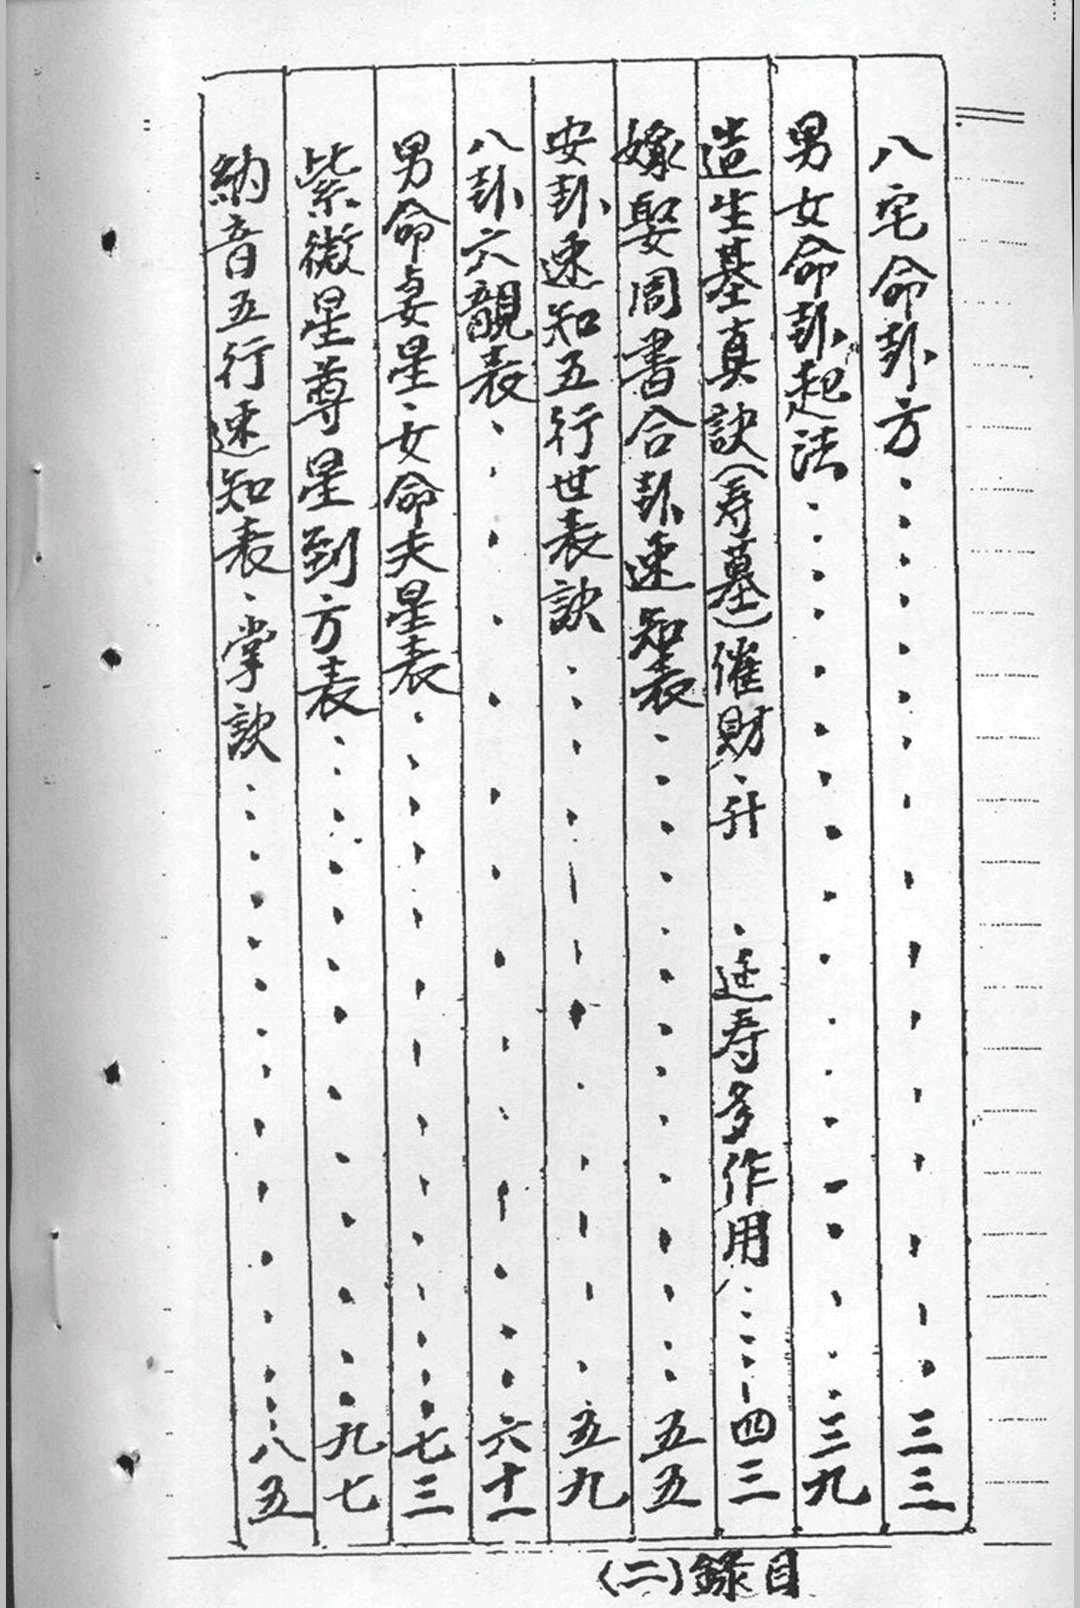 八宅命卦方……三三
男女命卦起法……三九
造生基真訣(寿墓)催財、升 、延寿多作用……四三
嫁娶周書合卦速知表……五五
安卦速知五行世表訣……五九
八卦六親表……六十一
男命妻星、女命夫星表……七三
紫微星尊星到方表……九七
納音五行速知表、掌訣……八五
目錄(二)